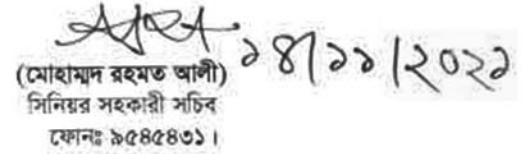 ১৪/১১/২০২১
(মোহাম্মদ রহমত আলী)
সিনিয়র সহকারী সচিব
ফোনঃ ৯৫৪৫৪৩১।